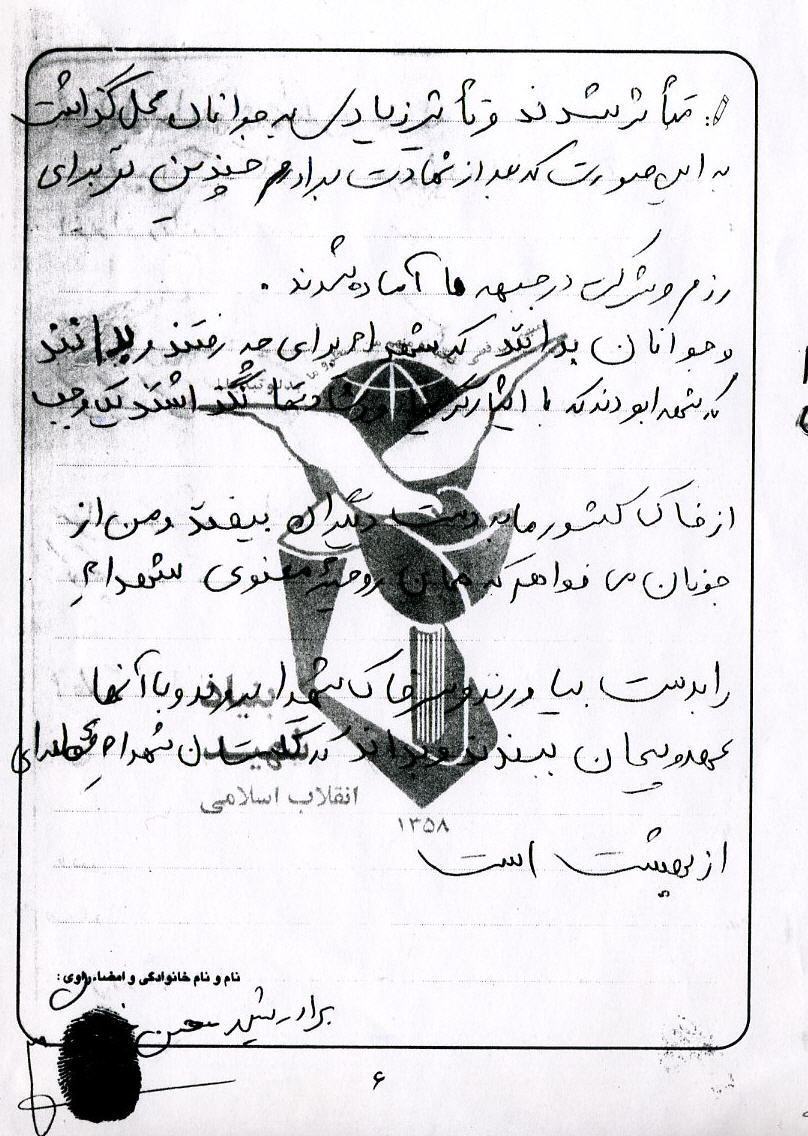 ج: متأثر شدند و تأثیر زیادی به جوانان محل گذاشت
به این صورت که بعد از شهادت برادرم چندین نفر برای
رزم و شرکت در جبهه ها آماده شدند .
و جوانان بدانند که شهدا برای چه رفتند و بدانند
که شهدا بودند که با ایثارگریها نگذاشتند یک وجب
از خاک کشور ما به دست دیگران بیفتد و من از
جوانان می خواهم که همان روحیه معنوی شهدا
را بدست بیاورند و سر خاک شهدا بروند و با آنها
عهد و پیمان ببندند و بدانند که گلستان شهدا
از بهشت است
بنیاد شهید
انقلاب اسلامی
۱۳۵۸
نام و نام خانوادگی و امضاء راوی :
برادر شهید محسن
۶